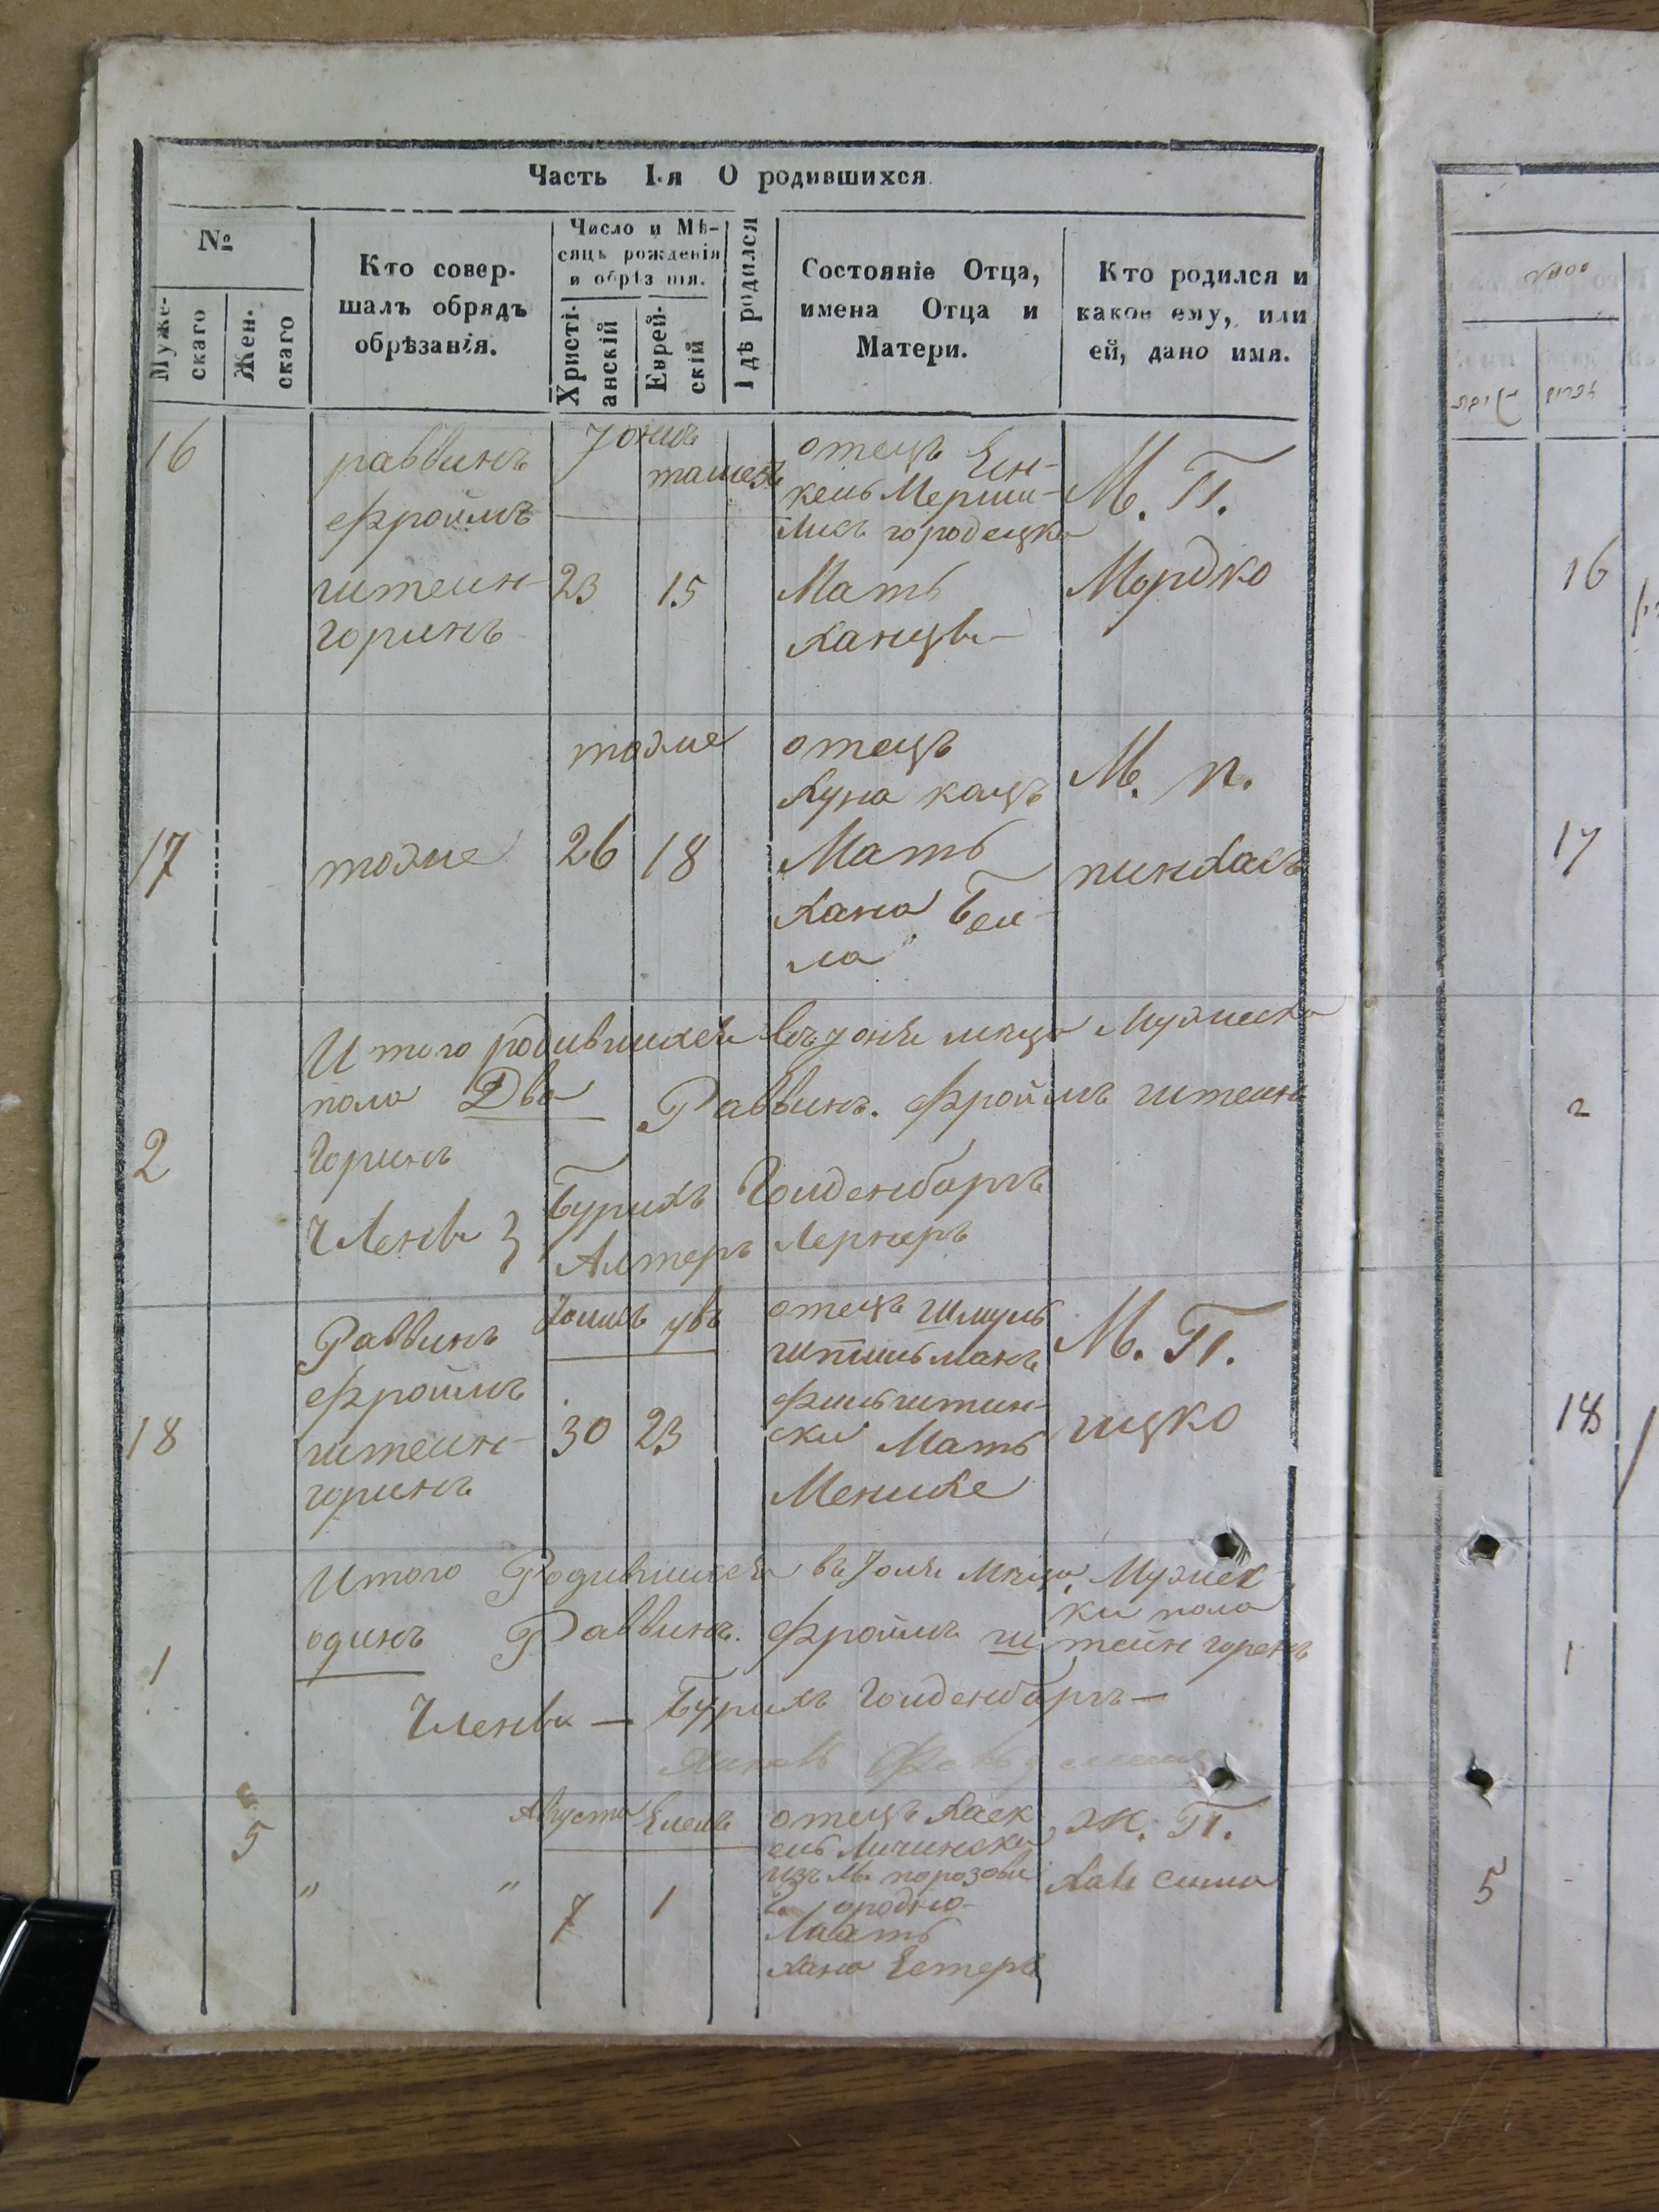 Часть I-я О родившихся
№
Муже-
скаго
Жен-
скаго
Кто совер-
шалъ обрядъ
обрѣзанія.
Число и Мѣ-
сяцъ рожденія
и обрѣз нія.
Христі-
анскій
Еврей-
скій
Гдѣ родился
Состояніе Отца,
имена Отца и
Матери.
Кто родился и
какое ему, или
ей, дано имя.
16
раввинъ
Фроймъ
штеин-
горинъ
23
15
отецъ Ен-
городецка
Мать
М. П.
Мордко
16
17
тоже
тоже
26
18
отецъ
Хуна кацъ
Мать
Хана Беи-
ла
М. п.
пинхасъ
17
Итого родившихся въ Юнѣ мсцѣ Мужеска
пола Два Раввинъ. Фроймъ штеин
горинъ
2
Члены } Бурихъ Голденбаргъ
Алтеръ Лернеръ
2
18
Раввинъ
Фроймъ
штеин-
горинъ
30
23
отецъ Шмуль
Мать
М. П.
ицко
18
Итого Родившихся въ Юлѣ мсцѣ Мужес-
ки пола
одинъ Раввинъ. Фроймъ штейнгоренъ
1
Члены — Бурихъ Голденбаргъ —
1
5
"
"
Августа
7
1
отецъ Хаск
ель
изъ М. порозови
Мать
Хана Естеръ
Ж. П.
Хая сима
5